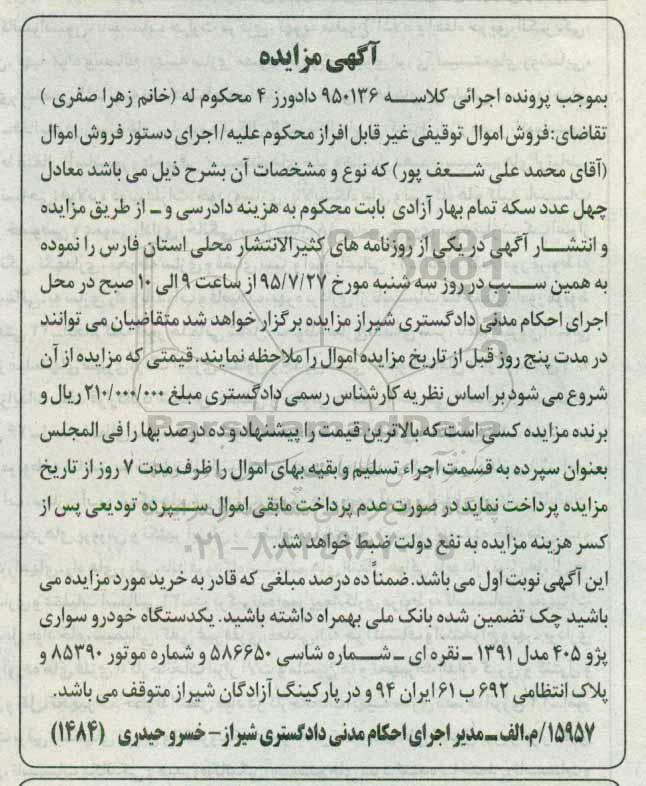 آگهی مزایده
بموجب پرونده اجرائی کلاسه ۹۵۰۱۳۶ دادورز ۴ محکوم له (خانم زهرا صفری )
تقاضای: فروش اموال توقیفی غیر قابل افراز محکوم علیه / اجرای دستور فروش اموال
(آقای محمد علی شعف پور) که نوع و مشخصات آن بشرح ذیل می باشد معادل
چهل عدد سکه تمام بهار آزادی بابت محکوم به هزینه دادرسی و ـ از طریق مزایده
و انتشار آگهی در یکی از روزنامه های کثیرالانتشار محلی استان فارس را نموده
به همین سبب در روز سه شنبه مورخ ۹۵/۷/۲۷ از ساعت ۹ الی ۱۰ صبح در محل
اجرای احکام مدنی دادگستری شیراز مزایده برگزار خواهد شد متقاضیان می توانند
در مدت پنج روز قبل از تاریخ مزایده اموال را ملاحظه نمایند. قیمتی که مزایده از آن
شروع می شود بر اساس نظریه کارشناس رسمی دادگستری مبلغ ۲۱۰/۰۰۰/۰۰۰ ریال و
برنده مزایده کسی است که بالاترین قیمت را پیشنهاد و ده درصد بها را فی المجلس
بعنوان سپرده به قسمت اجراء تسلیم و بقیه بهای اموال را ظرف مدت ۷ روز از تاریخ
مزایده پرداخت نماید در صورت عدم پرداخت مابقی اموال سپرده تودیعی پس از
کسر هزینه مزایده به نفع دولت ضبط خواهد شد.
این آگهی نوبت اول می باشد. ضمناً ده درصد مبلغی که قادر به خرید مورد مزایده می
باشید چک تضمین شده بانک ملی بهمراه داشته باشید. یکدستگاه خودرو سواری
پژو ۴۰۵ مدل ۱۳۹۱ ـ نقره ای ـ شماره شاسی ۵۸۶۶۵۰ و شماره موتور ۸۵۳۹۰ و
پلاک انتظامی ۶۹۲ ب ۶۱ ایران ۹۴ و در پارکینگ آزادگان شیراز متوقف می باشد.
۱۵۹۵۷/م.الف ـ مدیر اجرای احکام مدنی دادگستری شیراز - خسرو حیدری (۱۴۸۴)
ParsNamadData